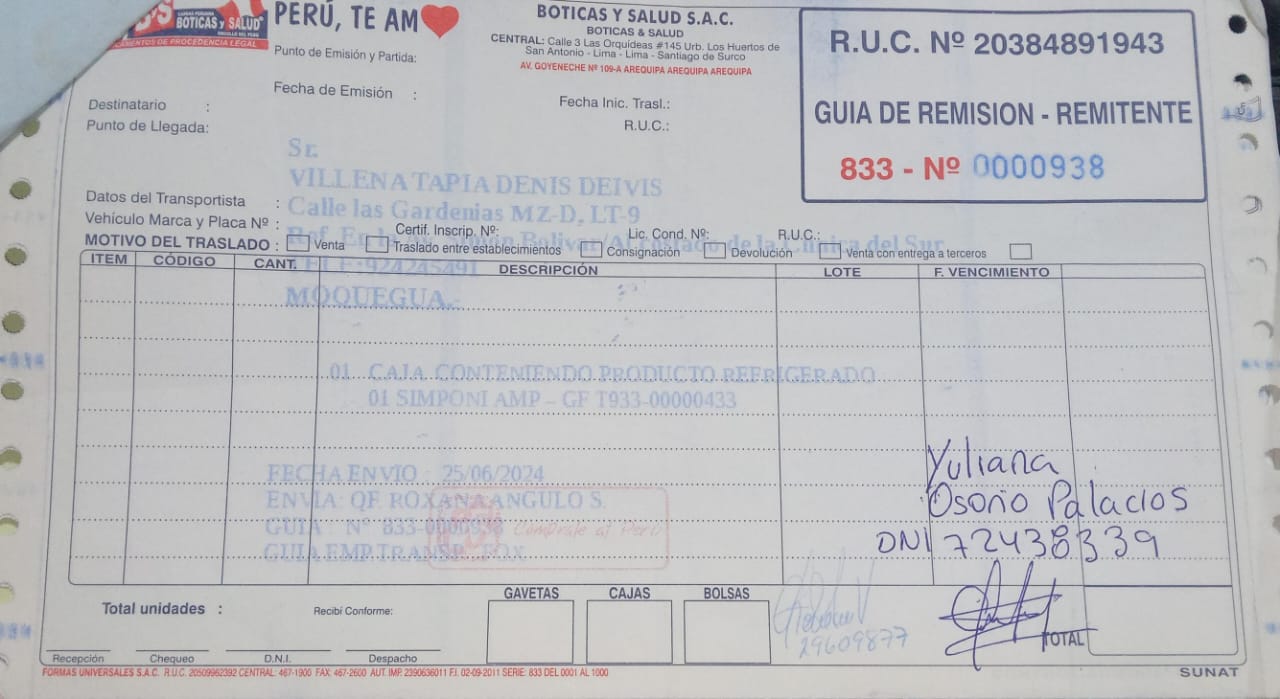 BOTICAS Y SALUD
MEDICAMENTOS DE PROCEDENCIA LEGAL
PERÚ, TE AM
Punto de Emisión y Partida:
Fecha de Emisión :
BOTICAS Y SALUD S.A.C.
BOTICAS & SALUD
CENTRAL: Calle 3 Las Orquideas #145 Urb. Los Huertos de
San Antonio - Lima - Lima - Santiago de Surco
AV. GOYENECHE Nº 109-A AREQUIPA AREQUIPA AREQUIPA
Fecha Inic. Trasl.:
R.U.C.:
R.U.C. Nº 20384891943
GUIA DE REMISION - REMITENTE
833 - Nº 0000938
Destinatario :
Punto de Llegada:
Sr.
VILLENA TAPIA DENIS DEIVIS
Calle las Gardenias MZ-D, LT-9
Datos del Transportista :
Vehículo Marca y Placa Nº : Certif. Inscrip. Nº: Lic. Cond. Nº: R.U.C.:
Bolivar/Al costado de la Clinica del Sur
MOTIVO DEL TRASLADO : Venta Traslado entre establecimientos Consignación Devolución Venta con entrega a terceros
924245491
ITEM CÓDIGO CANT. DESCRIPCIÓN LOTE F. VENCIMIENTO
MOQUEGUA.
01 CAJA CONTENIENDO PRODUCTO REFRIGERADO
01 SIMPONI AMP – GF T933-00000433
FECHA ENVIO : 25/06/2024
ENVIA: QF. ROXANA ANGULO S.
GUIA N° 833-0000938
Cómprale al Perú
GUIA EMP.TRANSP. FOX
Yuliana
Osorio Palacios
DNI 72438339
29609877
Total unidades :
Recibí Conforme:
GAVETAS CAJAS BOLSAS
TOTAL
Recepción Chequeo D.N.I. Despacho
FORMAS UNIVERSALES S.A.C. R.U.C. 20509962392 CENTRAL: 467-1900 FAX: 467-2600 AUT. IMP. 2390636011 F.I. 02-09-2011 SERIE: 833 DEL 0001 AL 1000
SUNAT